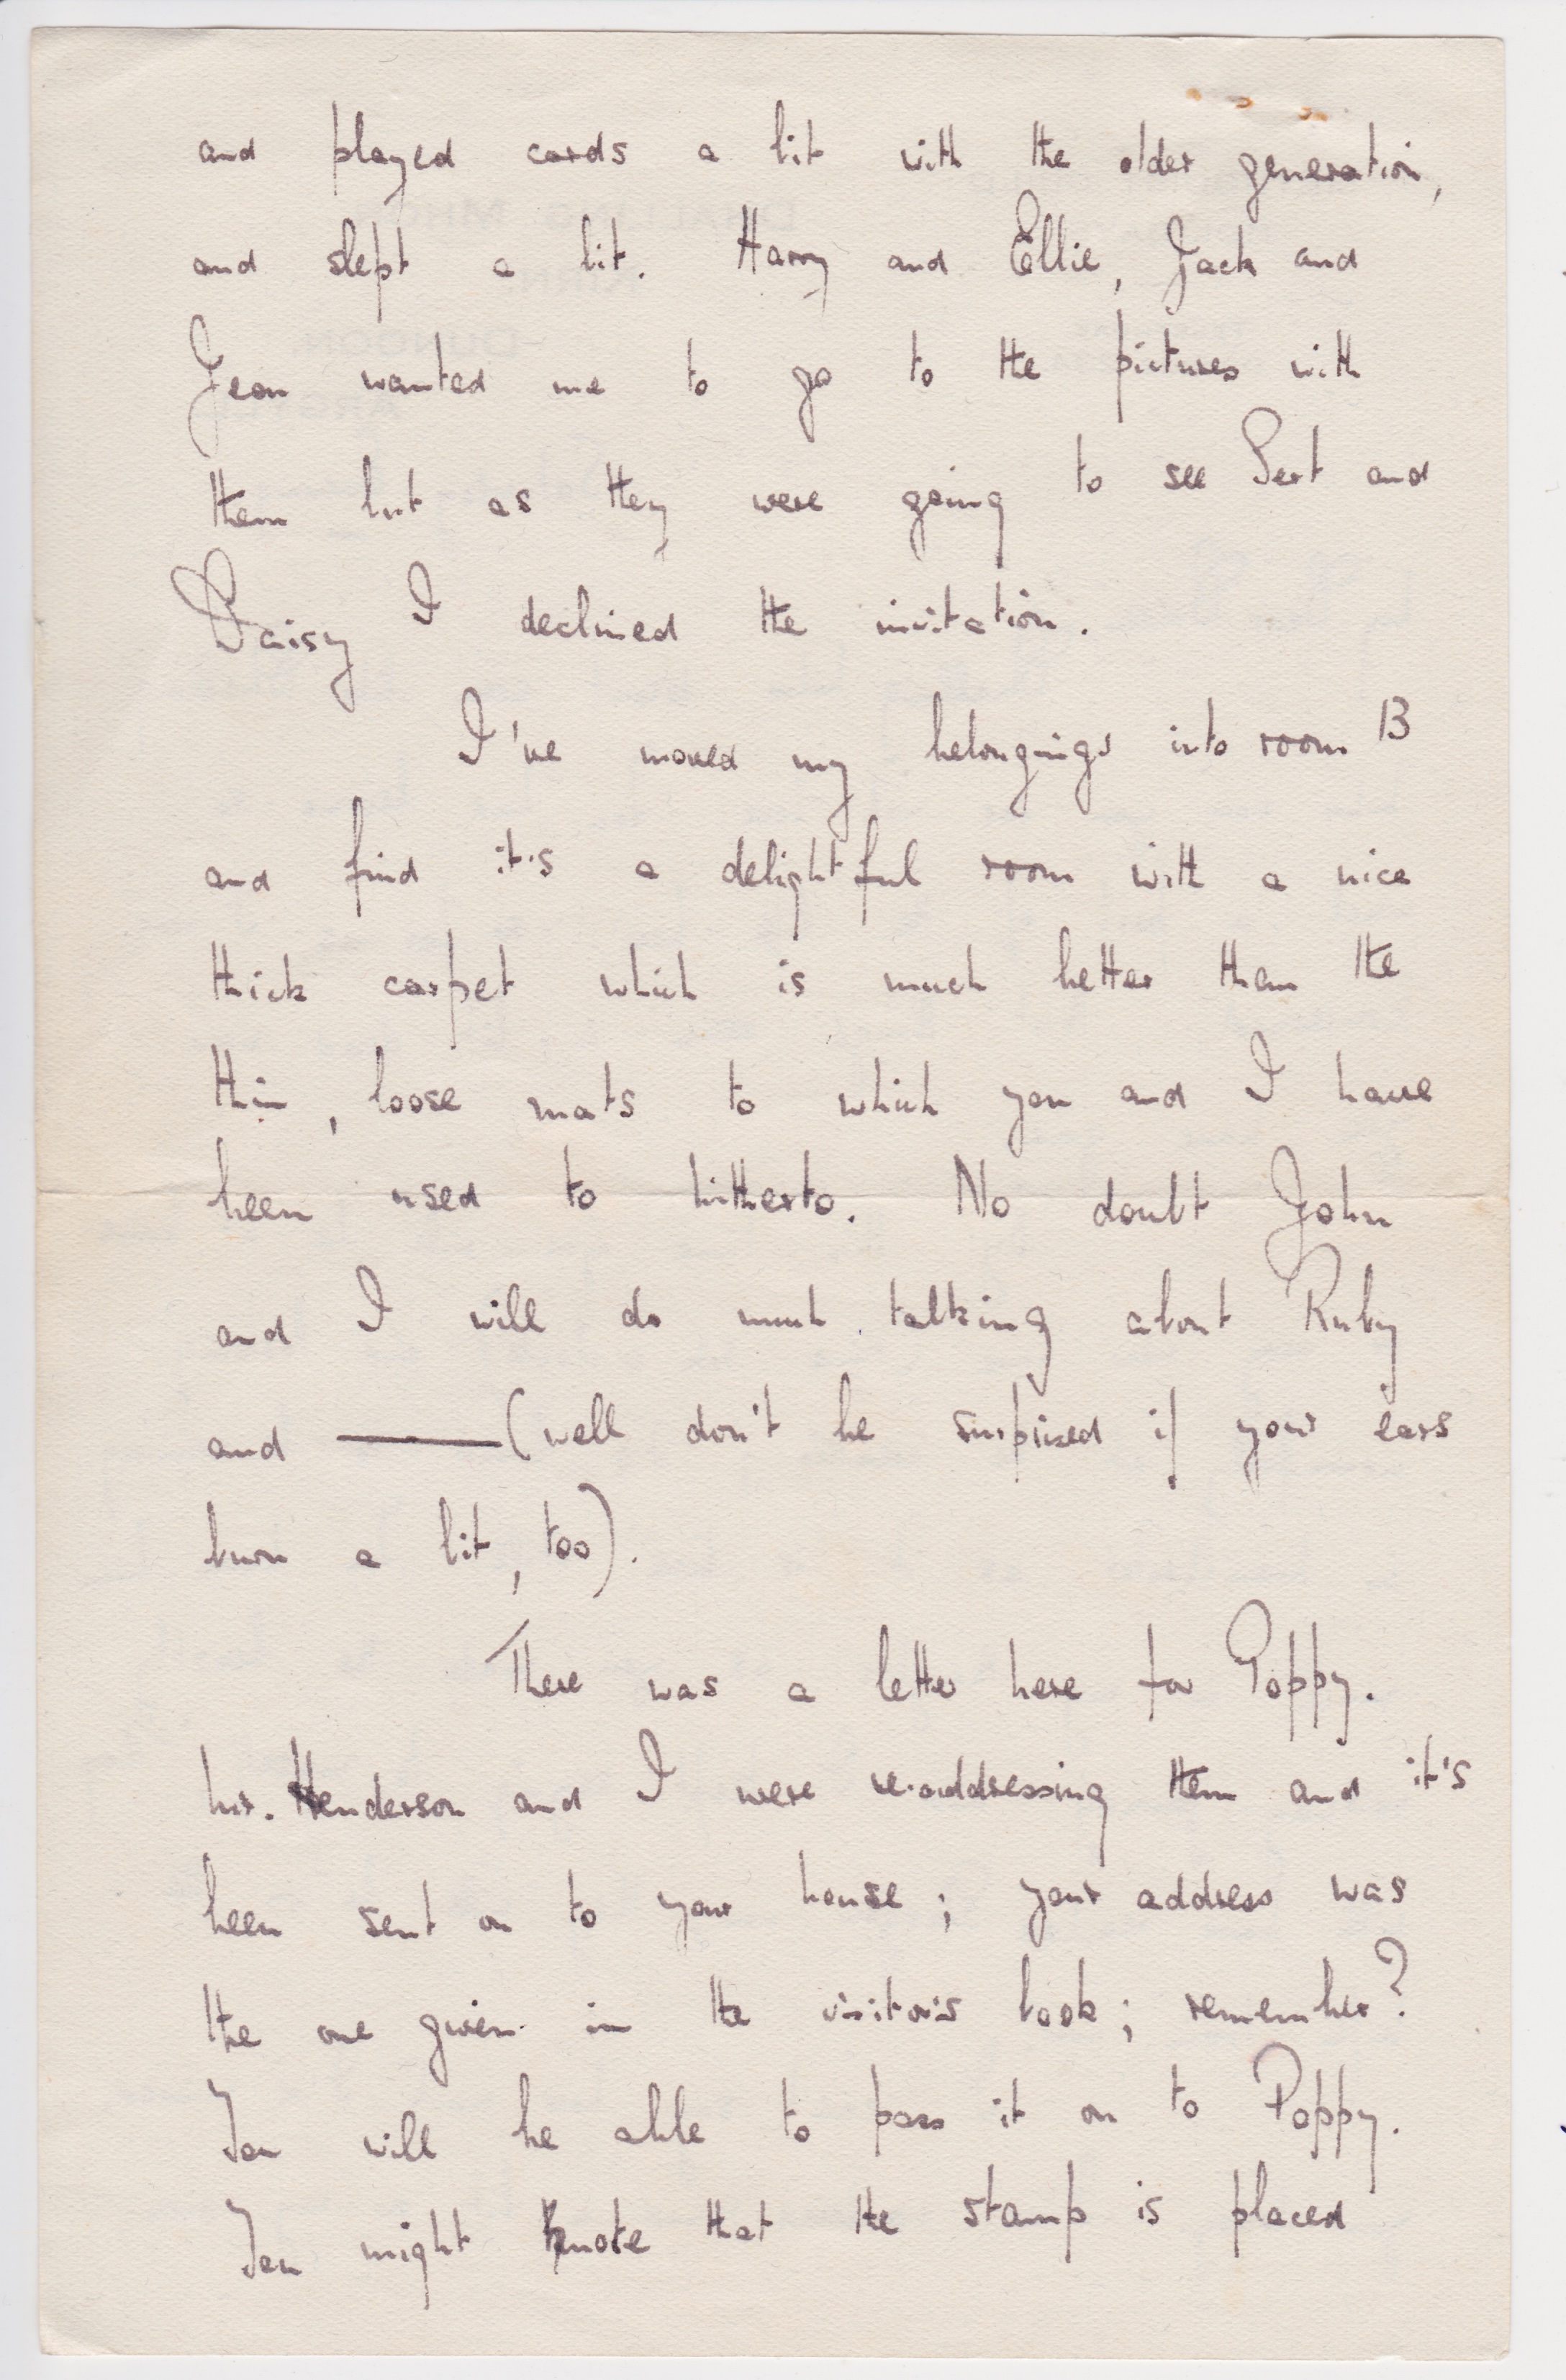 and played cards a bit with the older generation,
and slept a bit. Harry and Ellie, Jack and
Jean wanted me to go to the pictures with
them but as they were going to see Gert and
Daisy I declined the invitation.
I've moved my belongings into room 13
and find it's a delightful room with a nice
thick carpet which is much better than the
thin, loose mats to which you and I have
been used to hitherto. No doubt John
and I will do much talking about Ruby
and ——— (well don't be surprised if your ears
burn a bit, too).
There was a letter here for Poppy.
Mr. Henderson and I were re-addressing them and it's
been sent on to your house; your address was
the one given in the visitor's book; remember?
You will be able to pass it on to Poppy.
You might note that the stamp is placed